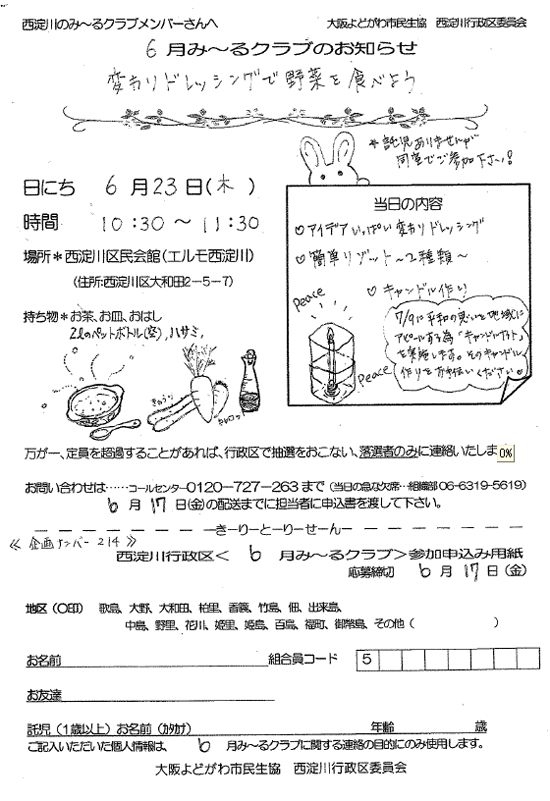 西淀川のみ～るクラブメンバーさんへ 大阪よどがわ市民生協 西淀川行政区委員会
6月み～るクラブのお知らせ
変わりドレッシングで野菜を食べよう
*託児ありませんが
同室でご参加下さい!
日にち 6月23日(木)
時間 10:30～11:30
場所*西淀川区民会館(エルモ西淀川)
(住所:西淀川区大和田2-5-7)
持ち物*お茶、お皿、おはし
2Lのペットボトル(空)、ハサミ
きゅうり
当日の内容
♡アイデアいっぱい変わりドレッシング
♡簡単リゾット～2種類～
♡キャンドル作り
peace
peace
7/9に平和の思いを地域に
アピールする為「キャンドルナイト」
を実施します。そのキャンドル
作りをお手伝いください♡
万が一、定員を超過することがあれば、行政区で抽選をおこない、落選者のみに連絡いたしま
0%
お問い合わせは……コールセンター0120-727-263まで(当日の急な欠席…組織部06-6319-5619)
6月17日(金)の配送までに担当者に申込書を渡して下さい。
きーりーとーりーせーん
≪企画ナンバー214≫
西淀川行政区<6月み～るクラブ>参加申込み用紙
応募締切 6月17日(金)
地区(○印) 歌島、大野、大和田、柏里、香簑、竹島、佃、出来島、
中島、野里、花川、姫里、姫島、百島、福町、御幣島、その他( )
お名前 組合員コード 5
お友達
託児(1歳以上)お名前(カタカナ) 年齢 歳
ご記入いただいた個人情報は、6月み～るクラブに関する連絡の目的にのみ使用します。
大阪よどがわ市民生協 西淀川行政区委員会